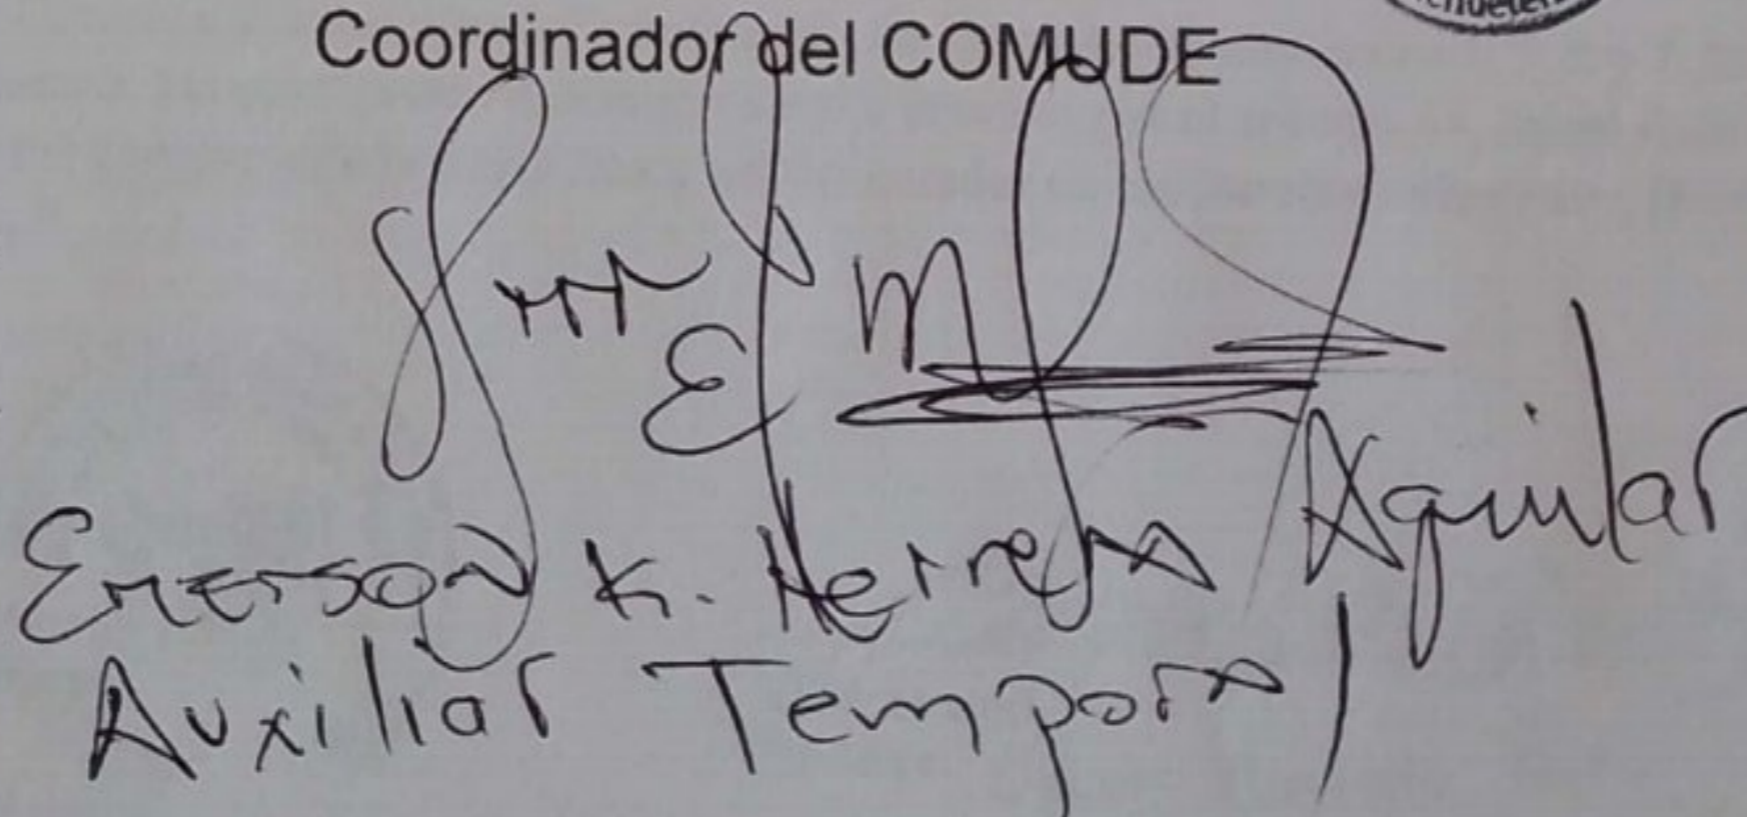 Coordinador del COMUDE
Emerson K. Herrera Aguilar
Auxiliar Temporal